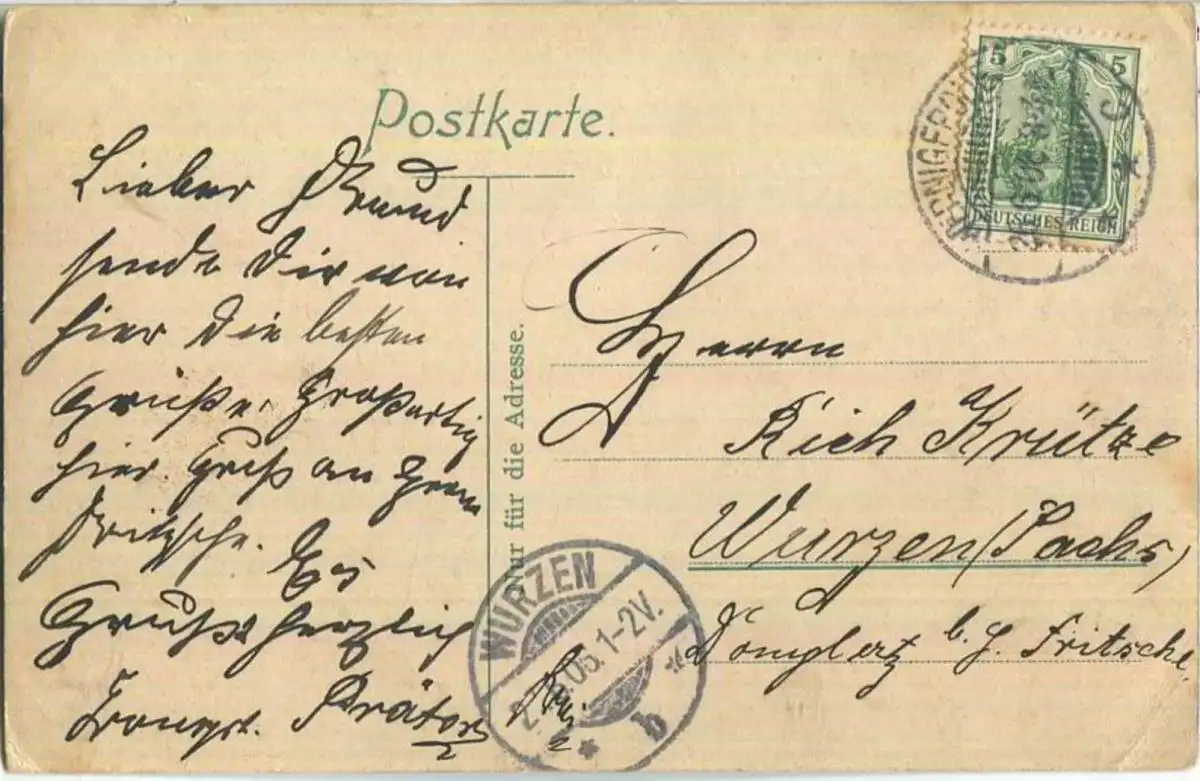 Postkarte.
Lieber Freund
sende Dir von
hier die besten
Grüße. Großartig
hier. Gruß an Herrn
Fritzsche. Es
Grüßt herzlich
Prätor
Nur für die Adresse.
Herrn
Rich Krütze
Wurzen (Sachs)
Domplatz b. H. Fritsche.
5 5
DEUTSCHES REICH
WERNIGERODE
WURZEN
06.1-2V.
* b